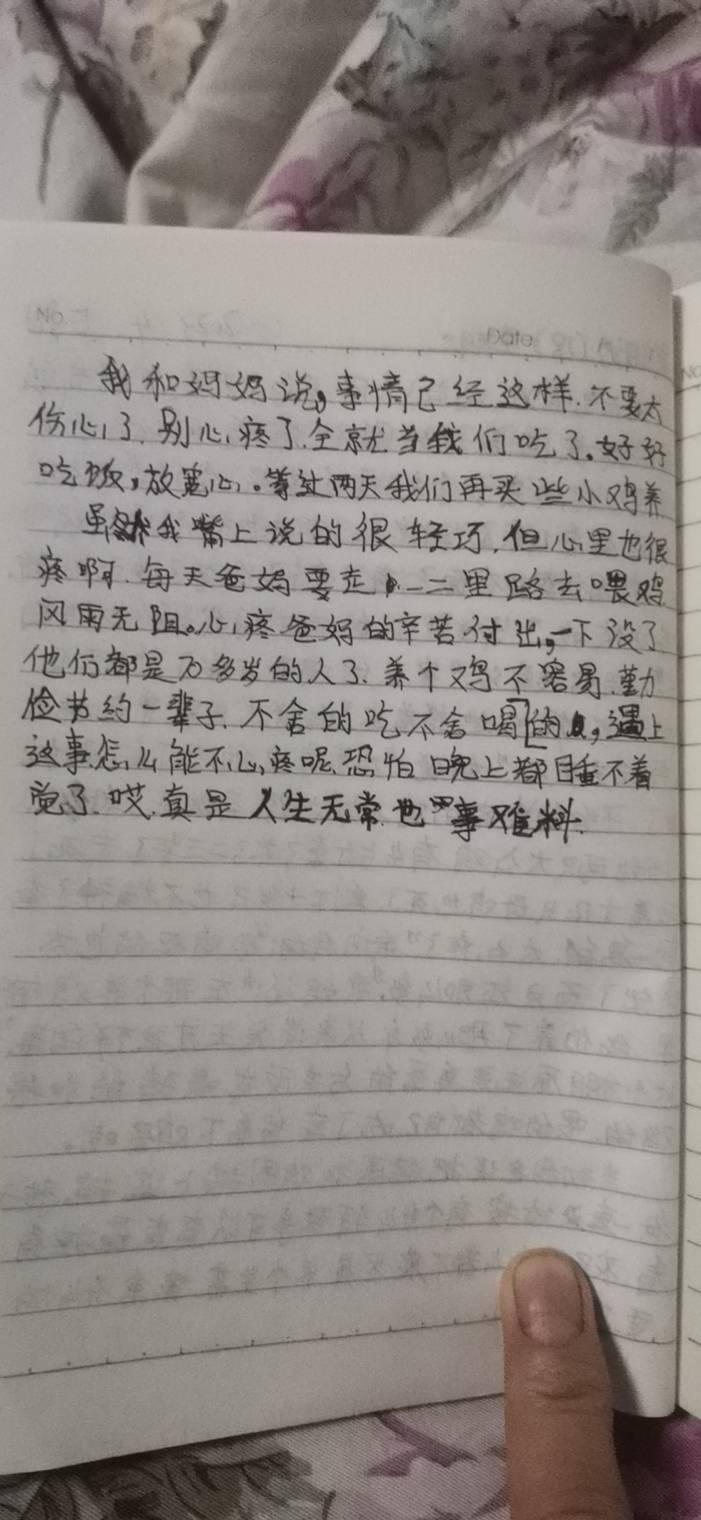 No.
Date
我和妈妈说,事情已经这样.不要太
伤心了.别心疼了.全就当我们吃了。好好
吃饭,放宽心。等过两天我们再买些小鸡养
虽然我嘴上说的很轻巧.但心里也很
疼啊.每天爸妈要走一二里路去喂鸡
风雨无阻。心疼爸妈的辛苦付出,一下没了
他们都是70多岁的人了.养个鸡不容易.勤
俭节约一辈子.不舍的吃不舍喝的,遇上
这事.怎么能不心疼呢.恐怕晚上都睡不着
觉了.哎.真是人生无常也 事难料.